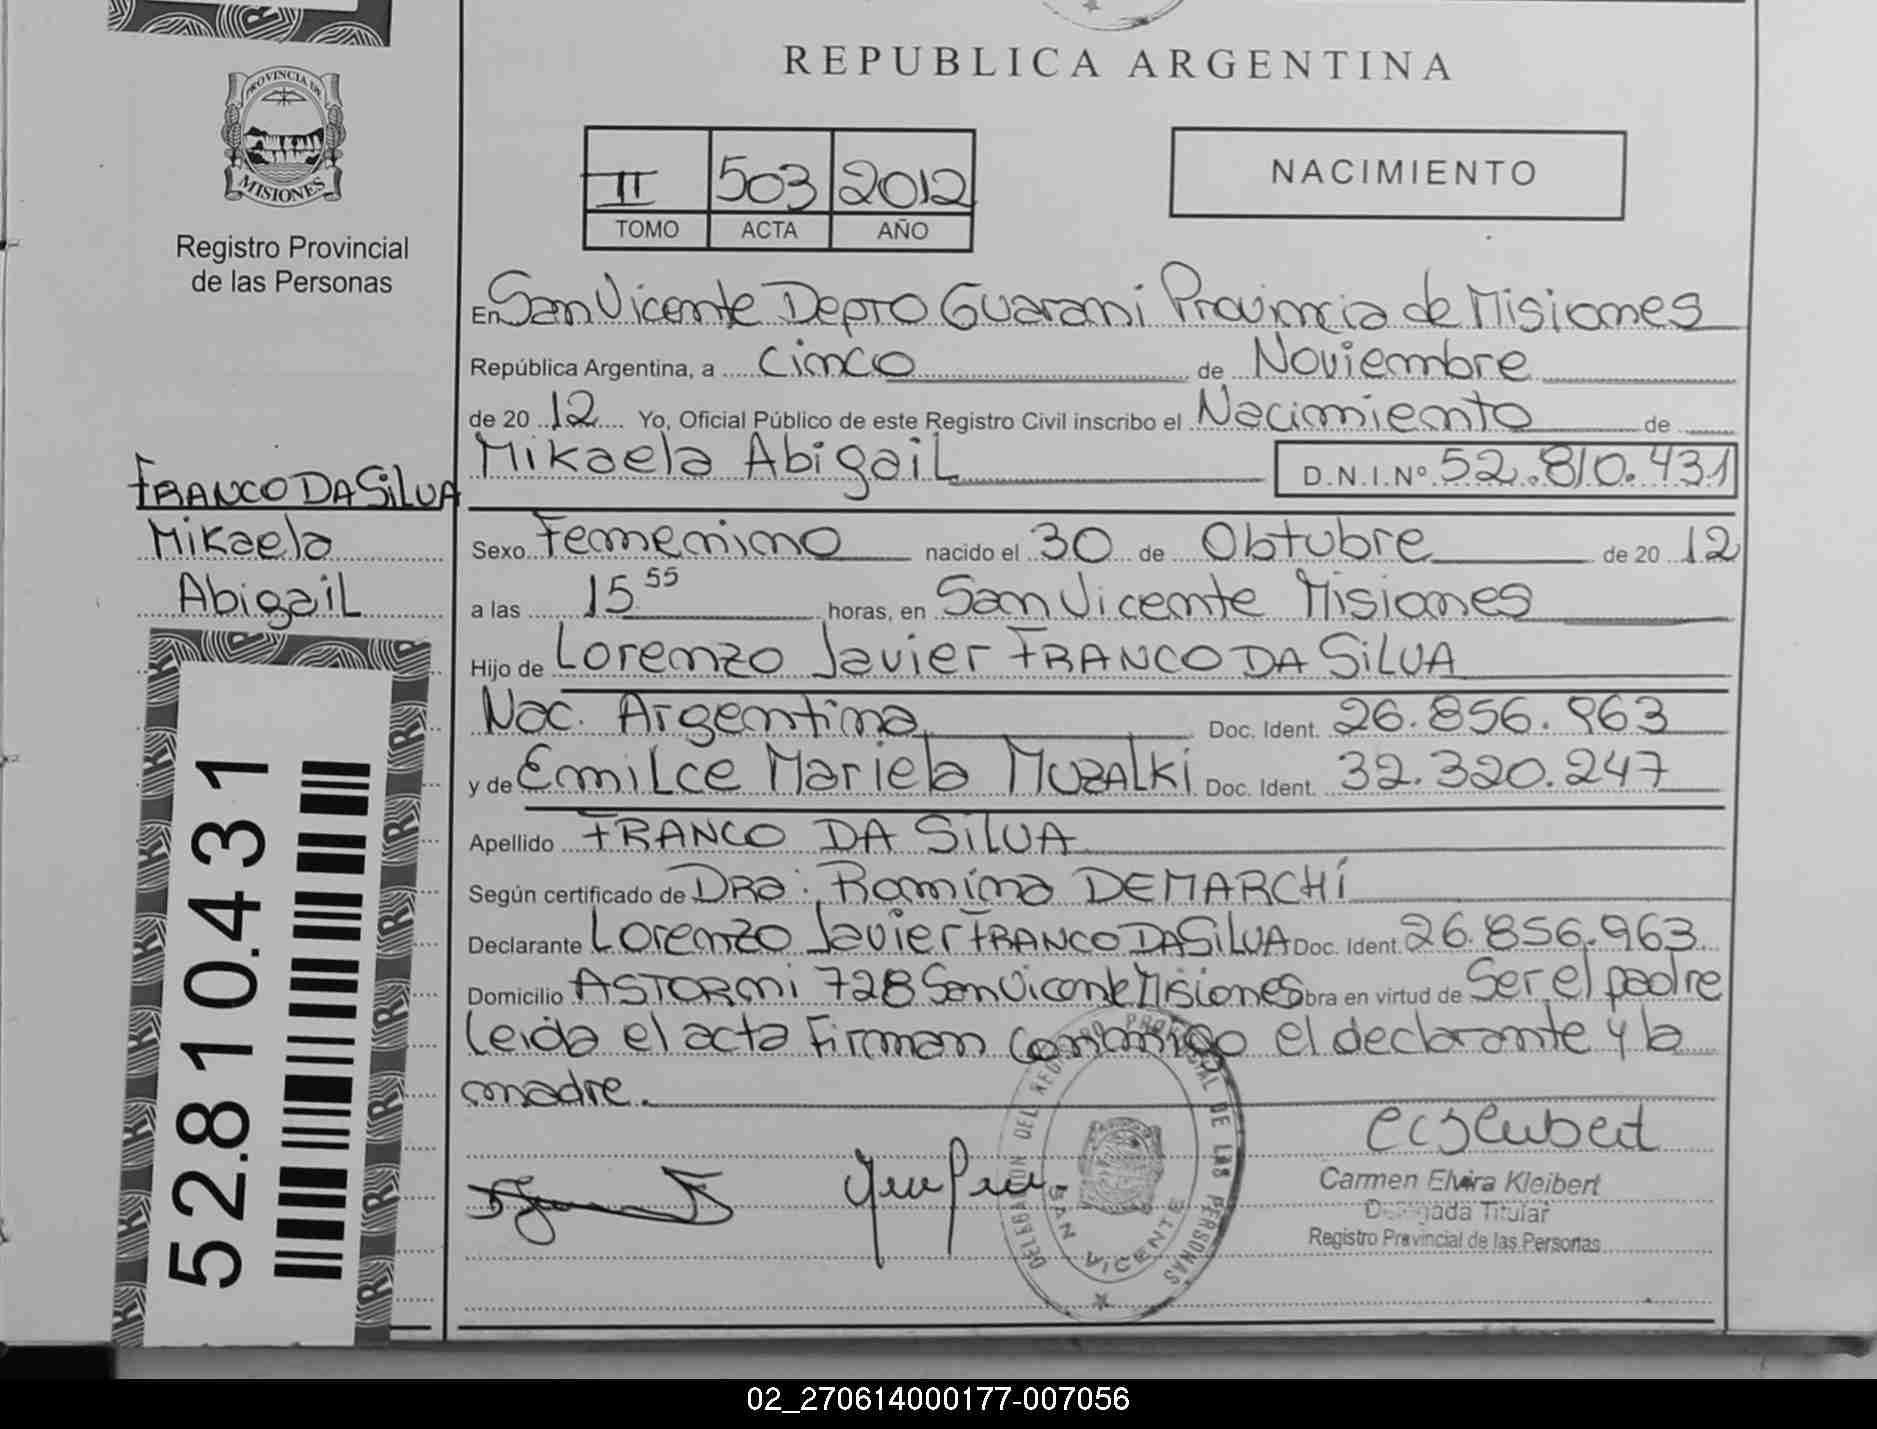 PROVINCIA DE
MISIONES
Registro Provincial
de las Personas
REPUBLICA ARGENTINA
II 503 2012
TOMO ACTA AÑO
NACIMIENTO
En San Vicente Depto Guarani Provincia de Misiones
República Argentina, a cinco de Noviembre
de 20 12 Yo, Oficial Público de este Registro Civil inscribo el Nacimiento de
Mikaela Abigail D.N.I.Nº 52.810.431
FRANCO DA SILVA
Mikaela
Abigail
Sexo Femenino nacido el 30 de Obtubre de 20 12
a las 15 55 horas, en San Vicente Misiones
Hijo de Lorenzo Javier FRANCO DA SILVA
Nac. Argentina Doc. Ident. 26.856.963
y de Emilce Mariela MUZALKI Doc. Ident. 32.320.247
Apellido FRANCO DA SILVA
Según certificado de DRa: Romina DEMARCHI
Declarante Lorenzo Javier FRANCO DA SILVA Doc. Ident. 26.856.963
Domicilio ASTORMI 728 San Vicente Misiones obra en virtud de Ser el padre
Leida el acta Firman conmigo el declarante y la
madre.
52.810.431
DELEGACION DEL REGISTRO PROVINCIAL DE LAS PERSONAS
SAN VICENTE
Carmen Elvira Kleibert
Delegada Titular
Registro Provincial de las Personas
02_270614000177-007056